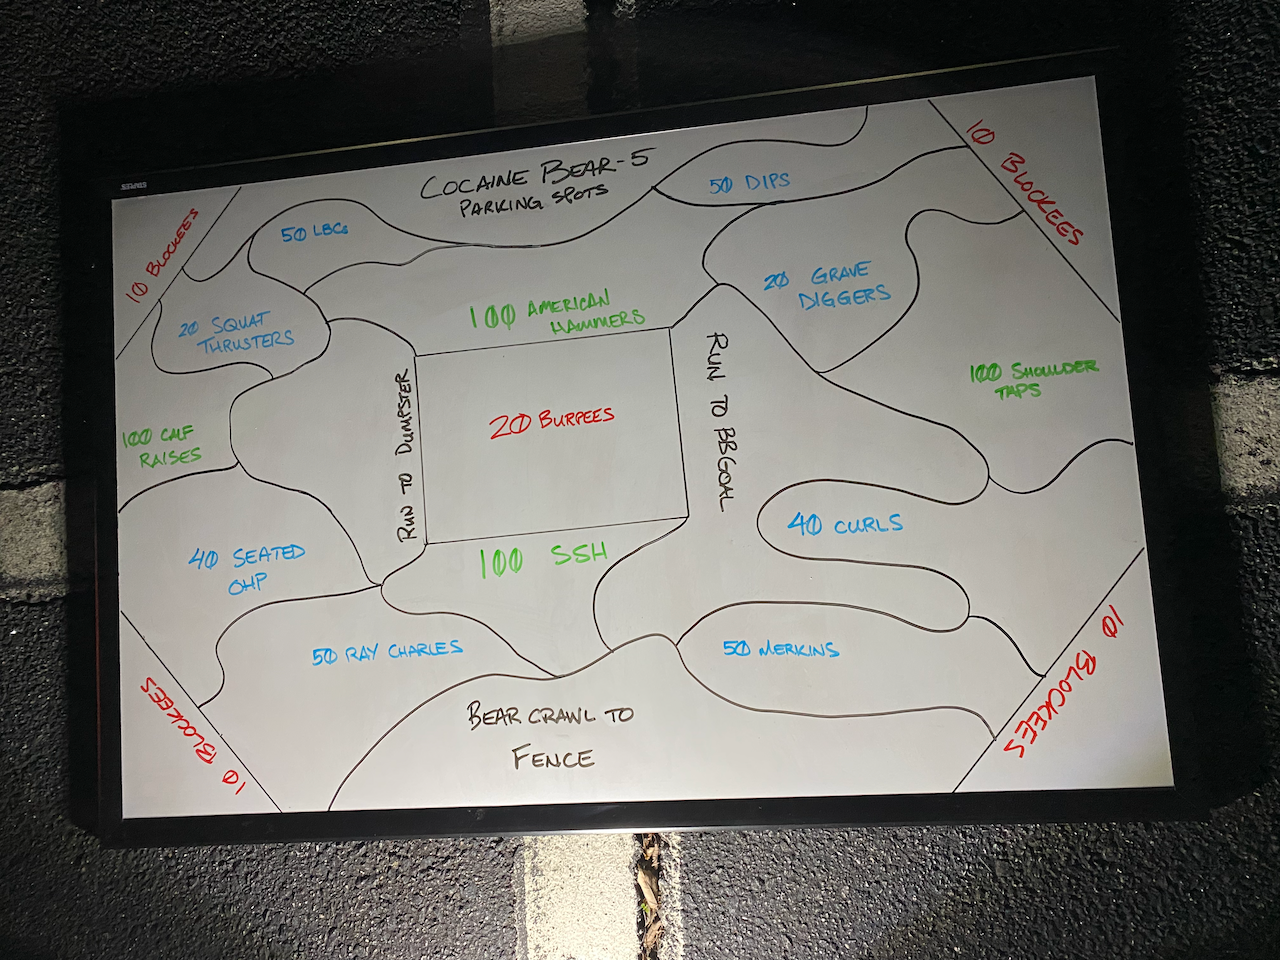 COCAINE BEAR-5
PARKING SPOTS
50 DIPS
10 BLOCKEES
10 BLOCKEES
50 LBCs
20 GRAVE
DIGGERS
20 SQUAT
THRUSTERS
100 AMERICAN
HAMMERS
RUN TO DUMPSTER
20 BURPEES
RUN TO BBGOAL
100 SHOULDER
TAPS
100 CALF
RAISES
40 SEATED
OHP
100 SSH
40 CURLS
50 RAY CHARLES
50 MERKINS
10 BLOCKEES
BEAR CRAWL TO
FENCE
10 BLOCKEES